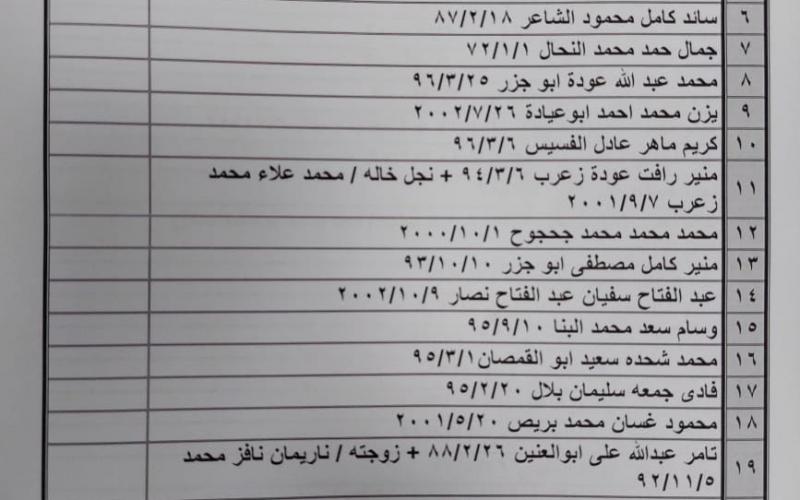 ٦ سائد كامل محمود الشاعر ٨٧/٢/١٨
٧ جمال حمد محمد النحال ٧٢/١/١
٨ محمد عبد الله عودة ابو جزر ٩٦/٣/٢٥
٩ يزن محمد احمد ابوعيادة ٢٠٠٢/٧/٢٦
١٠ كريم ماهر عادل الفسيس ٩٦/٣/٦
١١ منير رافت عودة زعرب ٩٤/٣/٦ + نجل خاله / محمد علاء محمد
زعرب ٢٠٠١/٩/٧
١٢ محمد محمد محمد جحجوح ٢٠٠٠/١٠/١
١٣ منير كامل مصطفى ابو جزر ٩٣/١٠/١٠
١٤ عبد الفتاح سفيان عبد الفتاح نصار ٢٠٠٢/١٠/٩
١٥ وسام سعد محمد البنا ٩٥/٩/١٠
١٦ محمد شحده سعيد ابو القمصان٩٥/٣/١
١٧ فادى جمعه سليمان بلال ٩٥/٢/٢٠
١٨ محمود غسان محمد بريص ٢٠٠١/٥/٢٠
١٩ تامر عبدالله على ابوالعنين ٨٨/٢/٢٦ + زوجته / ناريمان نافز محمد
٩٢/١١/٥